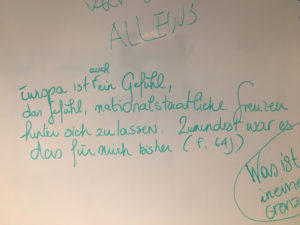 ALLEINS
auch
Europa ist ein Gefühl,
das Gefühl, nationalstaatliche Grenzen
hinter sich zu lassen. Zumindest war es
das für mich bisher (F, 64J.)
Was ist
Grenz